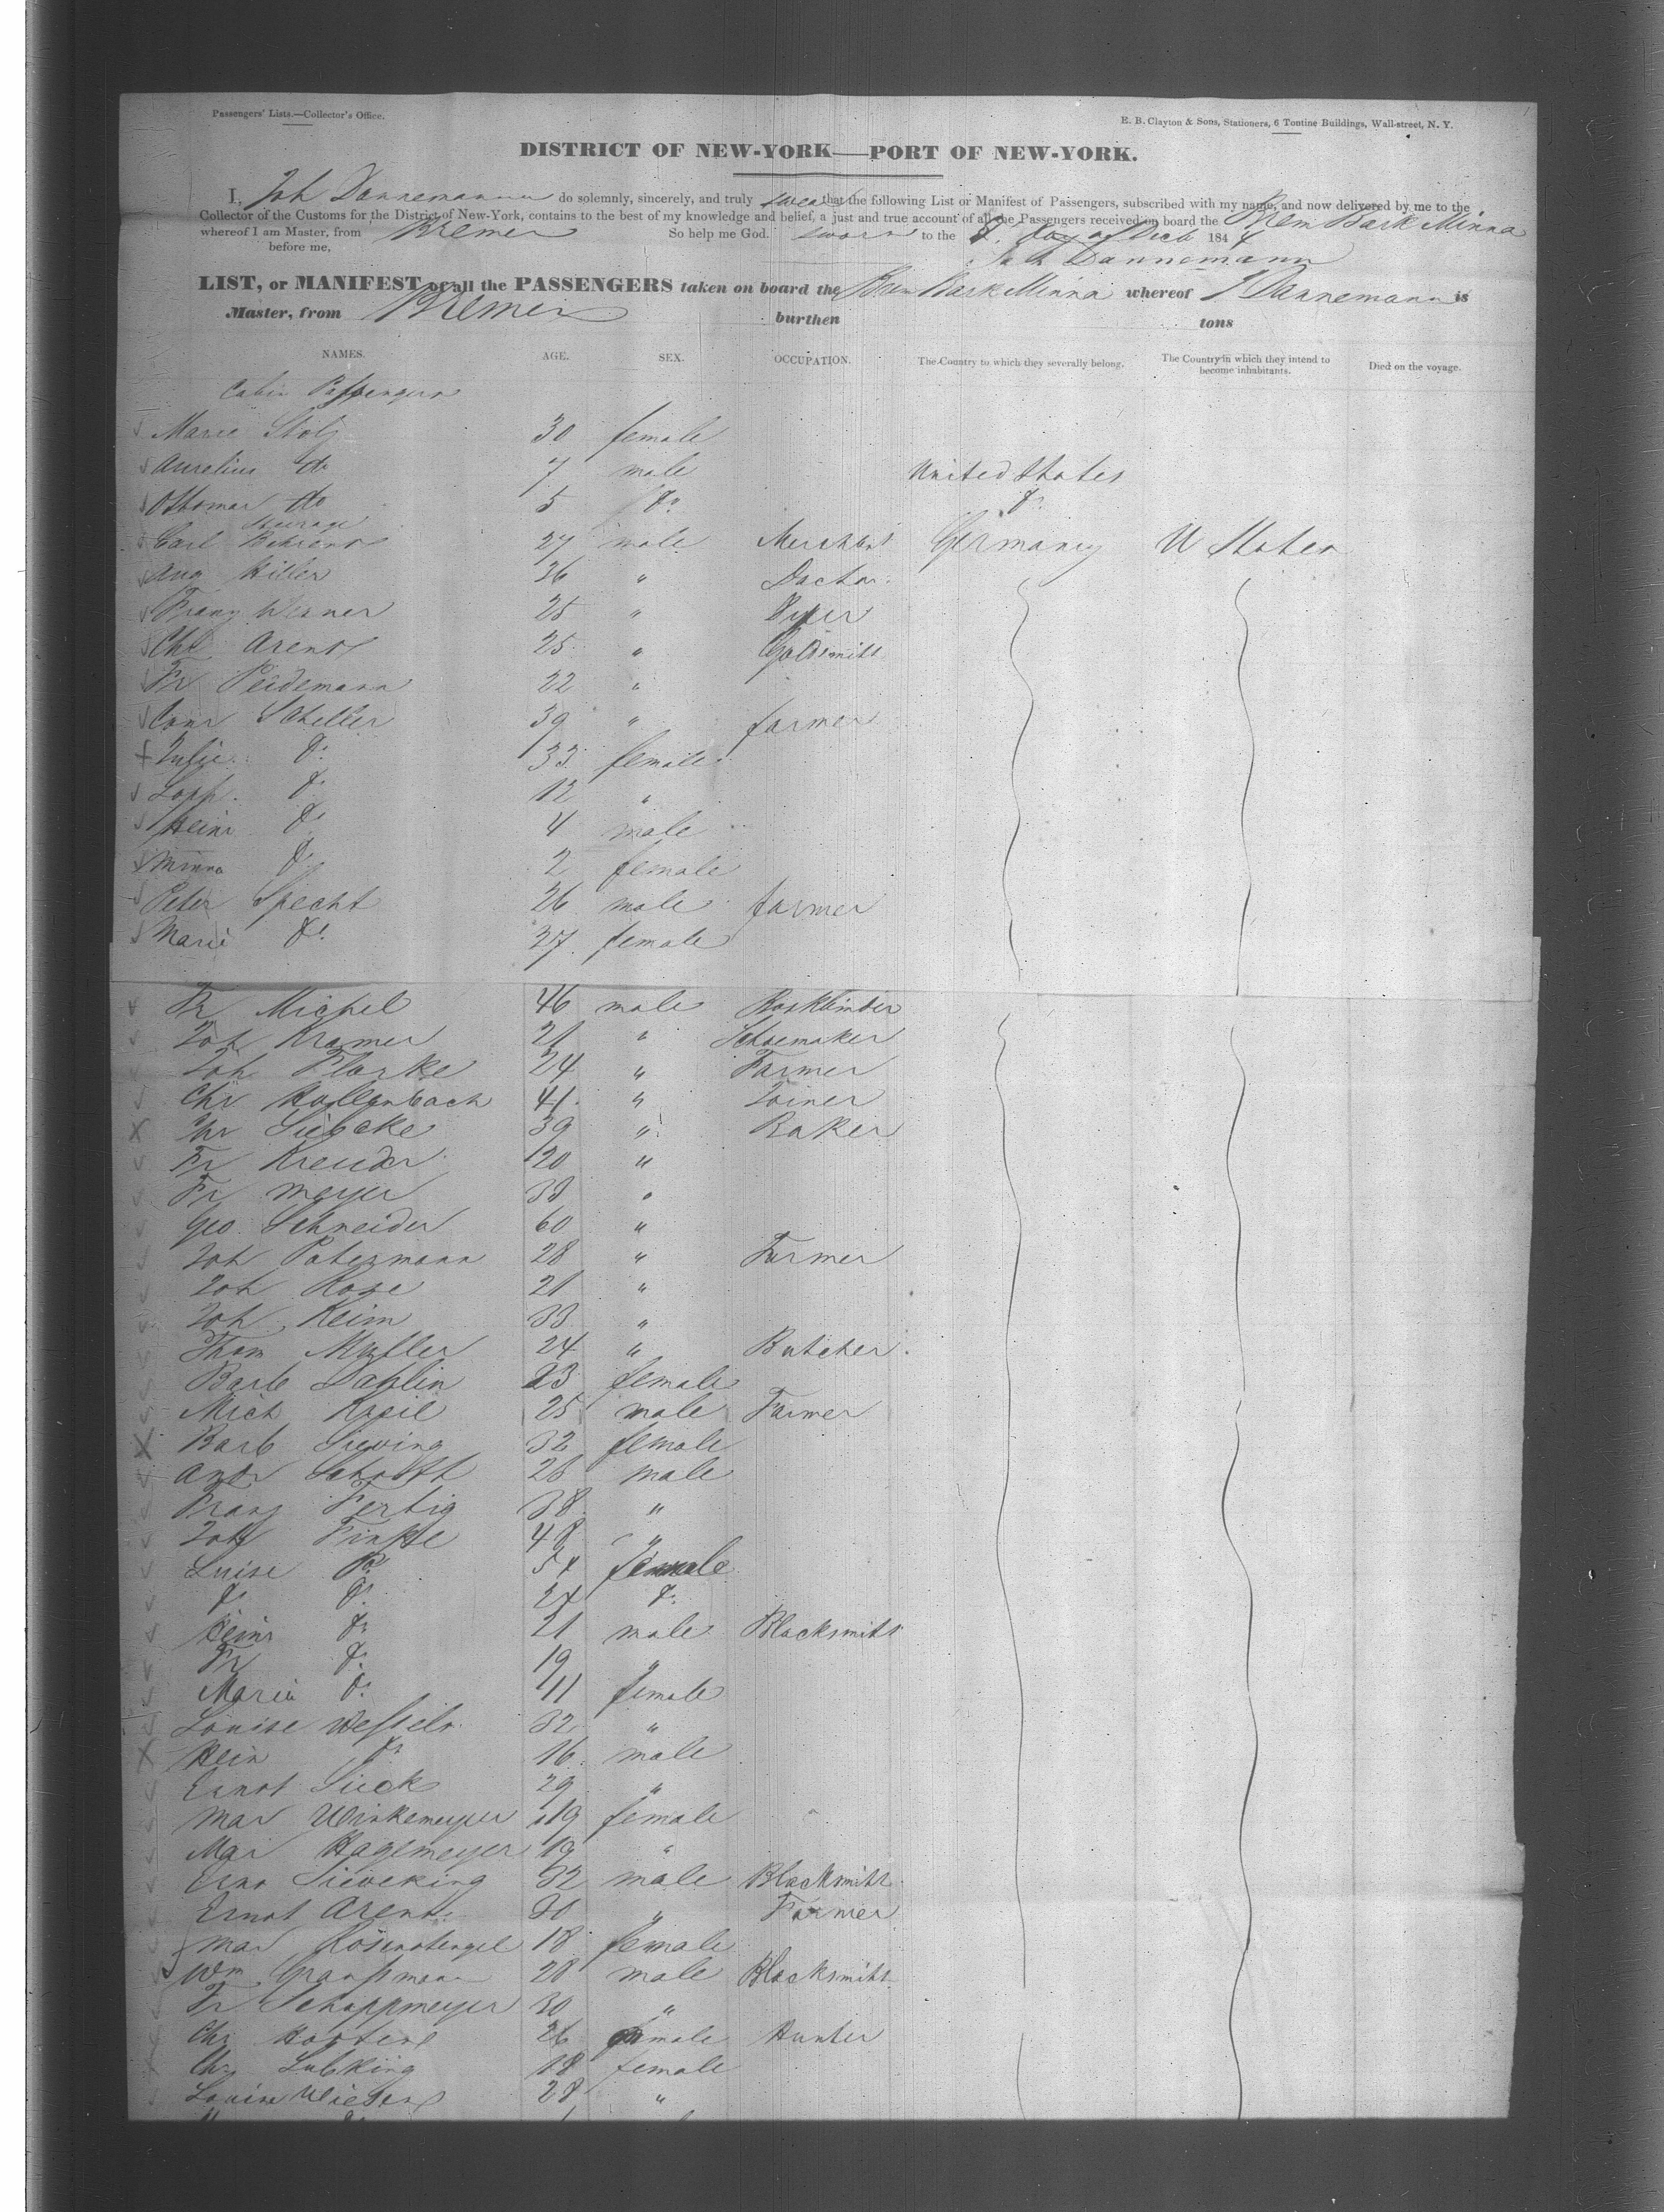 Passengers' Lists.—Collector's Office.
E. B. Clayton & Sons, Stationers, 6 Tontine Buildings, Wall-street, N. Y.
DISTRICT OF NEW-YORK—PORT OF NEW-YORK.
I, Joh Dannemann do solemnly, sincerely, and truly swear that the following List or Manifest of Passengers, subscribed with my name, and now delivered by me to the
Collector of the Customs for the District of New-York, contains to the best of my knowledge and belief, a just and true account of all the Passengers received on board the Brem Bark Minna
whereof I am Master, from Bremen So help me God. sworn to the day of Decb 1844
before me, Joh Dannemann
LIST, or MANIFEST of all the PASSENGERS taken on board the Brem Bark Minna whereof Dannemann is
Master, from Bremen burthen tons
NAMES. AGE. SEX. OCCUPATION. The Country to which they severally belong. The Country in which they intend to become inhabitants. Died on the voyage.
Cabin Passengers
Marie Stolz 30 female
Aurelius do 7 male United States
Ottomar do 5 do do
Steerage
Carl Behrens 27 male Merchant Germany U States
Aug Hiller 36 " Doctor
Franz Werner 25 " Dyer
Chl Arens 25 " Goldsmith
Fr Peidemann 22 "
Conr Scheller 39 " farmer
Julie do 33 female
Soph. do 12 "
Heinr do 4 male
Minna do 2 female
Peter Specht 26 male farmer
Marie do 27 female
Fr Michel 46 male Bookbinder
Joh Kramer 21 " Schoemaker
Joh Plorke 24 " Farmer
Chr Hollenbach 41 " Joiner
Chr Siebcke 39 " Baker
Fr Kreuder 20 "
Fr Meyer 38 "
Geo Schneider 60 "
Joh Patermann 28 " Farmer
Joh Rose 21 "
Joh Keim 33 "
Thom Muller 24 " Butcher.
Barb Dahlin 23 female
Mich Kreil 25 male Farmer
Barb Siewing 32 female
Andr Schofft 26 male
Franz Fertig 38 "
Joh Finke 48 "
Luise Do 54 female
do do 24 do
Heinr do 21 male Blacksmith
Fr do 19 "
Maria do 11 female
Louise Wessels 32 "
Hein do 16 male
Ernst Sieck 29 "
Mar Winkemeyer 19 female
Mar Hagemeyer 19 "
Erns Sieveking 32 male Blacksmith
Ernst Arent 30 " Farmer
Mar Rosenstengel 18 female
Wm Graussmann 28 male Blacksmith
Fr Schoppmeyer 30 "
Chr 26 male Hunter
Chr Lubking 18 female
Louise 28 "